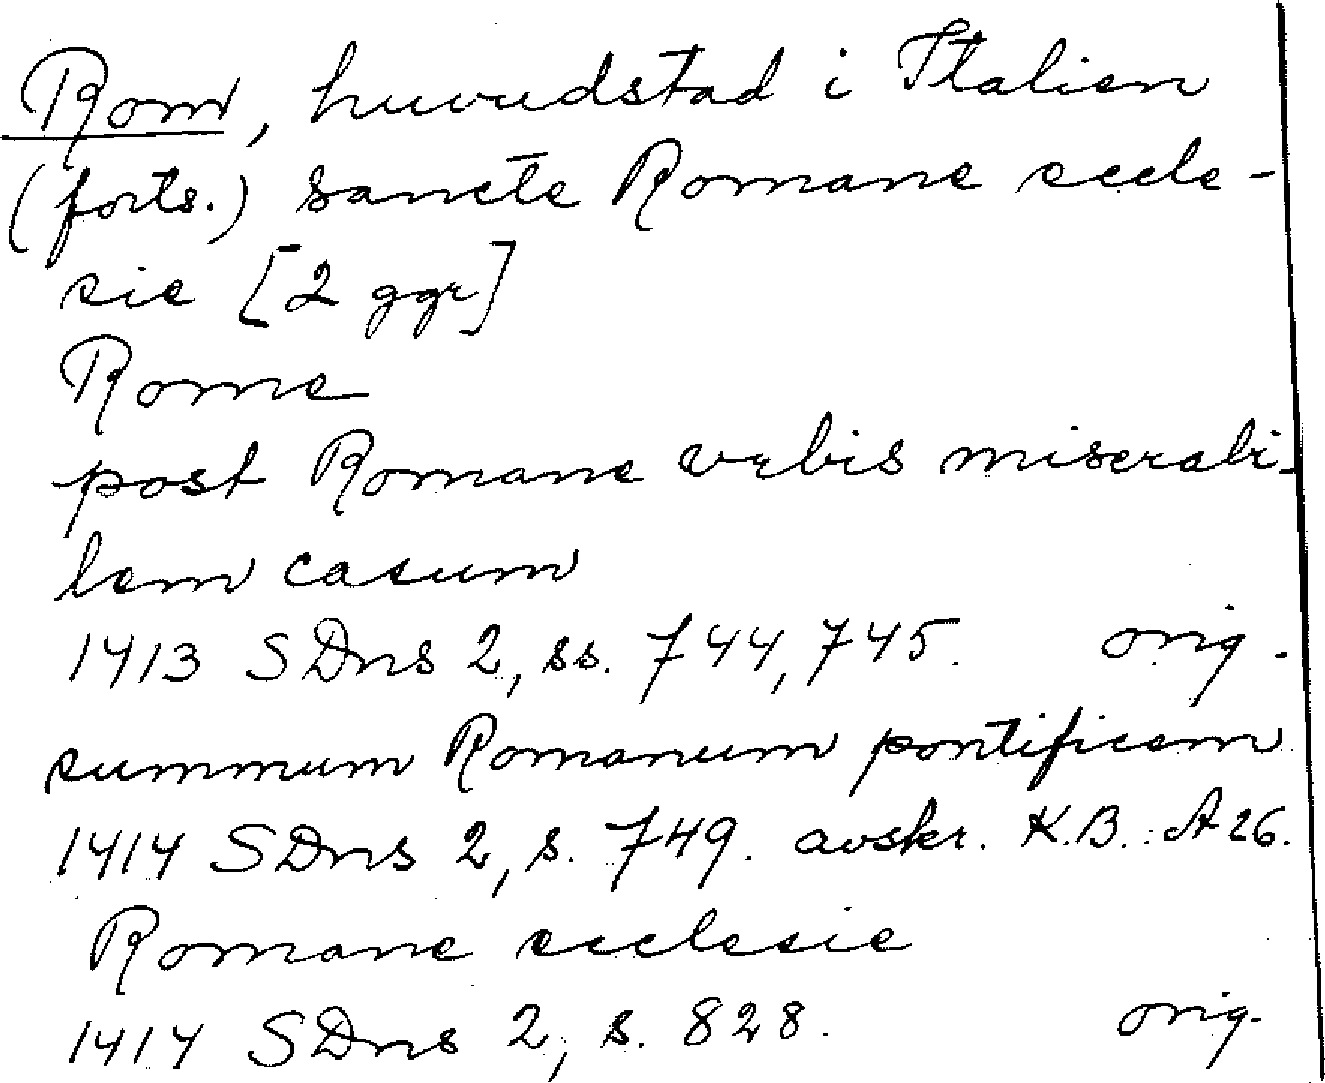 Rom, huvudstad i Italien
(forts.) sancte Romane eccle-
sie [2 ggr]
Rome
post Romane vrbis miserabi-
lem casum
1413 SDns 2, ss. 744, 745. orig.
summum Romanum pontificem
1414 SDns 2, s. 749. avskr. K.B. A 26.
Romane ecclesie
1414 SDns 2, s. 828. orig.